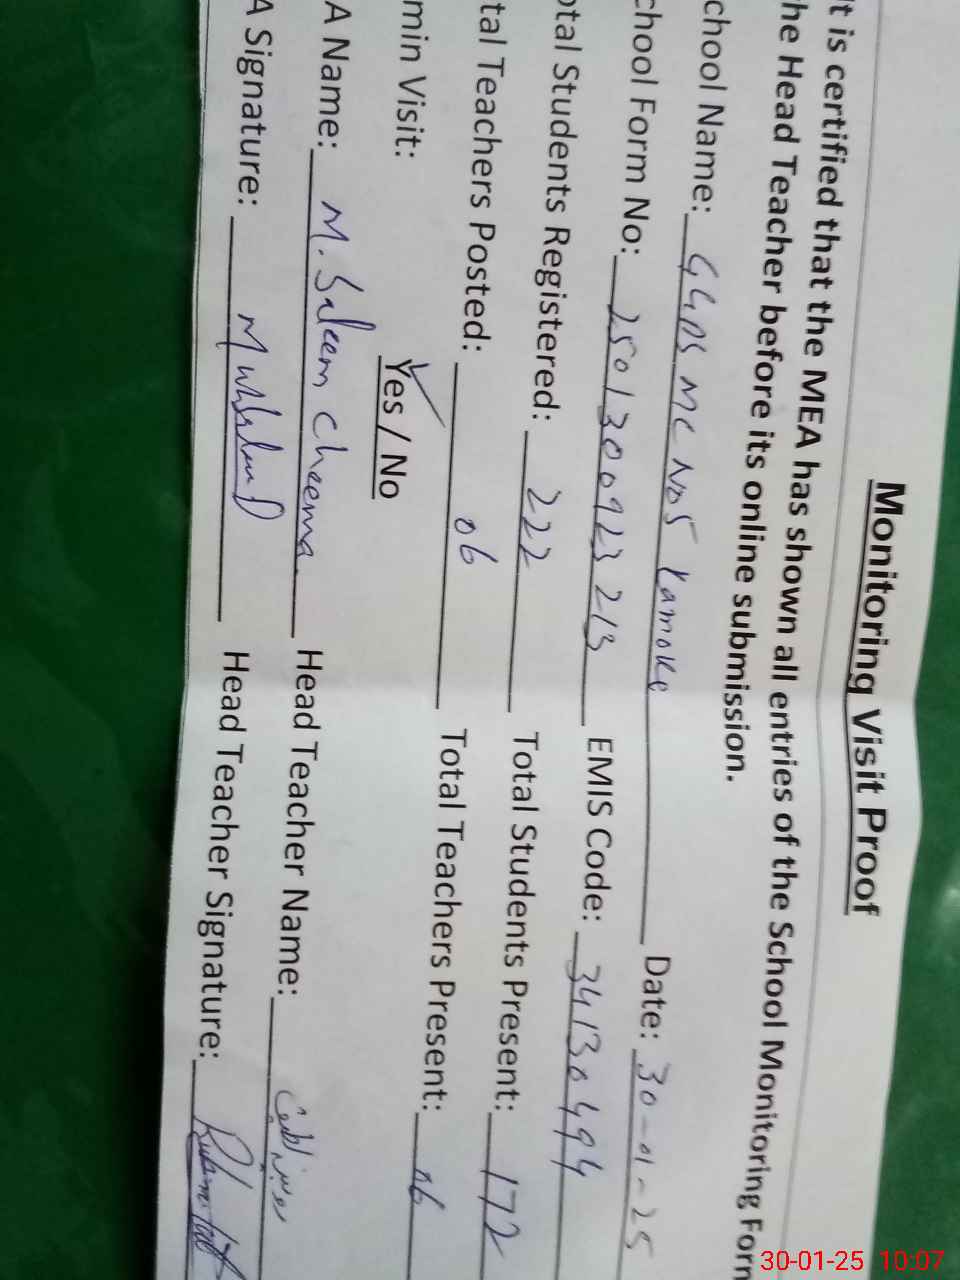 Monitoring Visit Proof
It is certified that the MEA has shown all entries of the School Monitoring Form
he Head Teacher before its online submission.
chool Name: GGPS MC No5 Kamoke Date: 30-01-25
chool Form No: 2501300923213 EMIS Code: 34130494
otal Students Registered: 222 Total Students Present: 172
tal Teachers Posted: 06 Total Teachers Present: 06
min Visit: Yes / No
A Name: M. Saleem Cheema Head Teacher Name: روبینہ
A Signature: Head Teacher Signature:
30-01-25 10:07